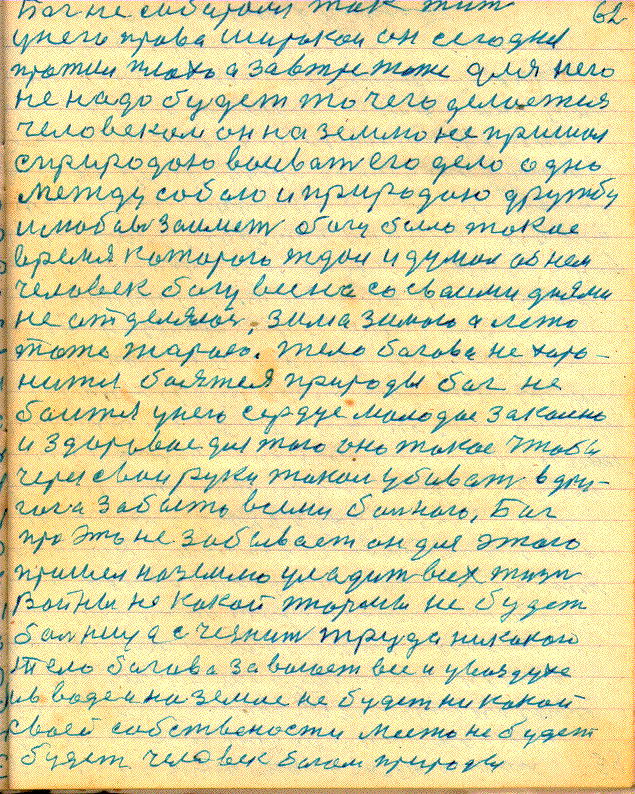 Бог не собирался так жит 62
у него права широкаи он сегодня
прожил плохо а завтре тоже для него
не надо будет то чего делоется
человеком он на землю не пришол
сприродою воеват его дело одно
между собою и природою дружбу
богу было такое
время которого ждал и думал об нем
человек богу весна со своими днями
не отделялос, зима зимою а лето
тоже жарою. тело богова не харо-
нится боятся природы бог не
боится у него сердце молодое закално
и здоровое для того оно такое чтобы
через свои руки такой убиват в дру-
гога забыть всеми болного, Бог
про эть не забывает он для этого
пришел на землю уладит всех жизн
Войны не какой тюрмы не будет
болницу а счезнит труда никакого
тело богова завоюет все и у воздухе
и в воде и на земле не будет ни какой
своей собствености место не будет
будет человек богом природы